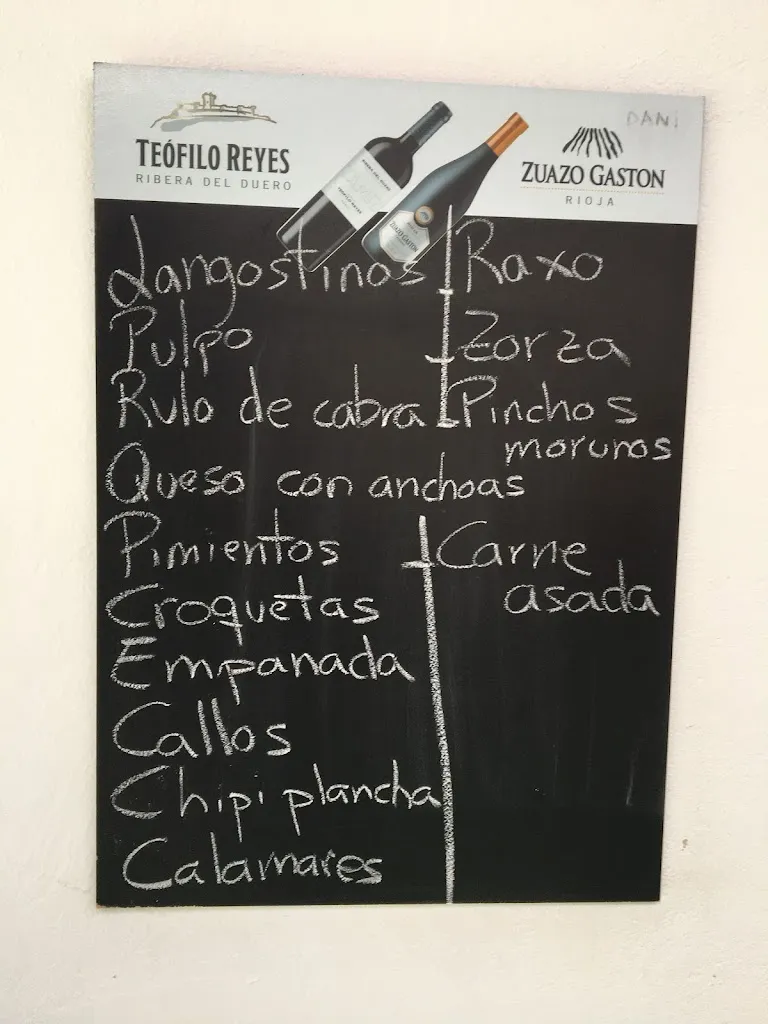 DANI
TEÓFILO REYES
RIBERA DEL DUERO
ZUAZO GASTON
RIOJA
RIBERA DEL DUERO
TEÓFILO REYES
ZUAZO GASTON
Langostinos
Pulpo
Rulo de cabra
Queso con anchoas
Pimientos
Croquetas
Empanada
Callos
Chipi plancha
Calamares
Raxo
Zorza
Pinchos
morunos
Carne
asada